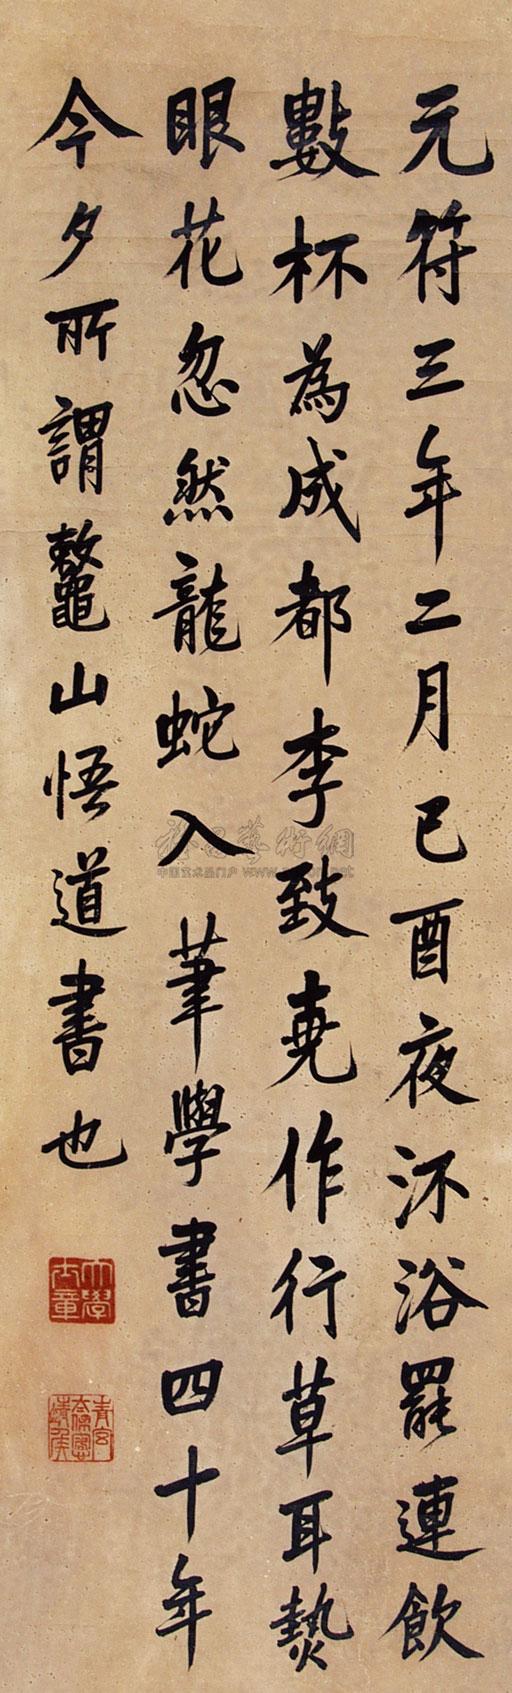 元符三年二月己酉夜沐浴罷連飲
數杯為成都李致堯作行草耳熱
眼花忽然龍蛇入筆學書四十年
今夕所謂鼇山悟道書也
大學士章
中國藝术品门户 www.